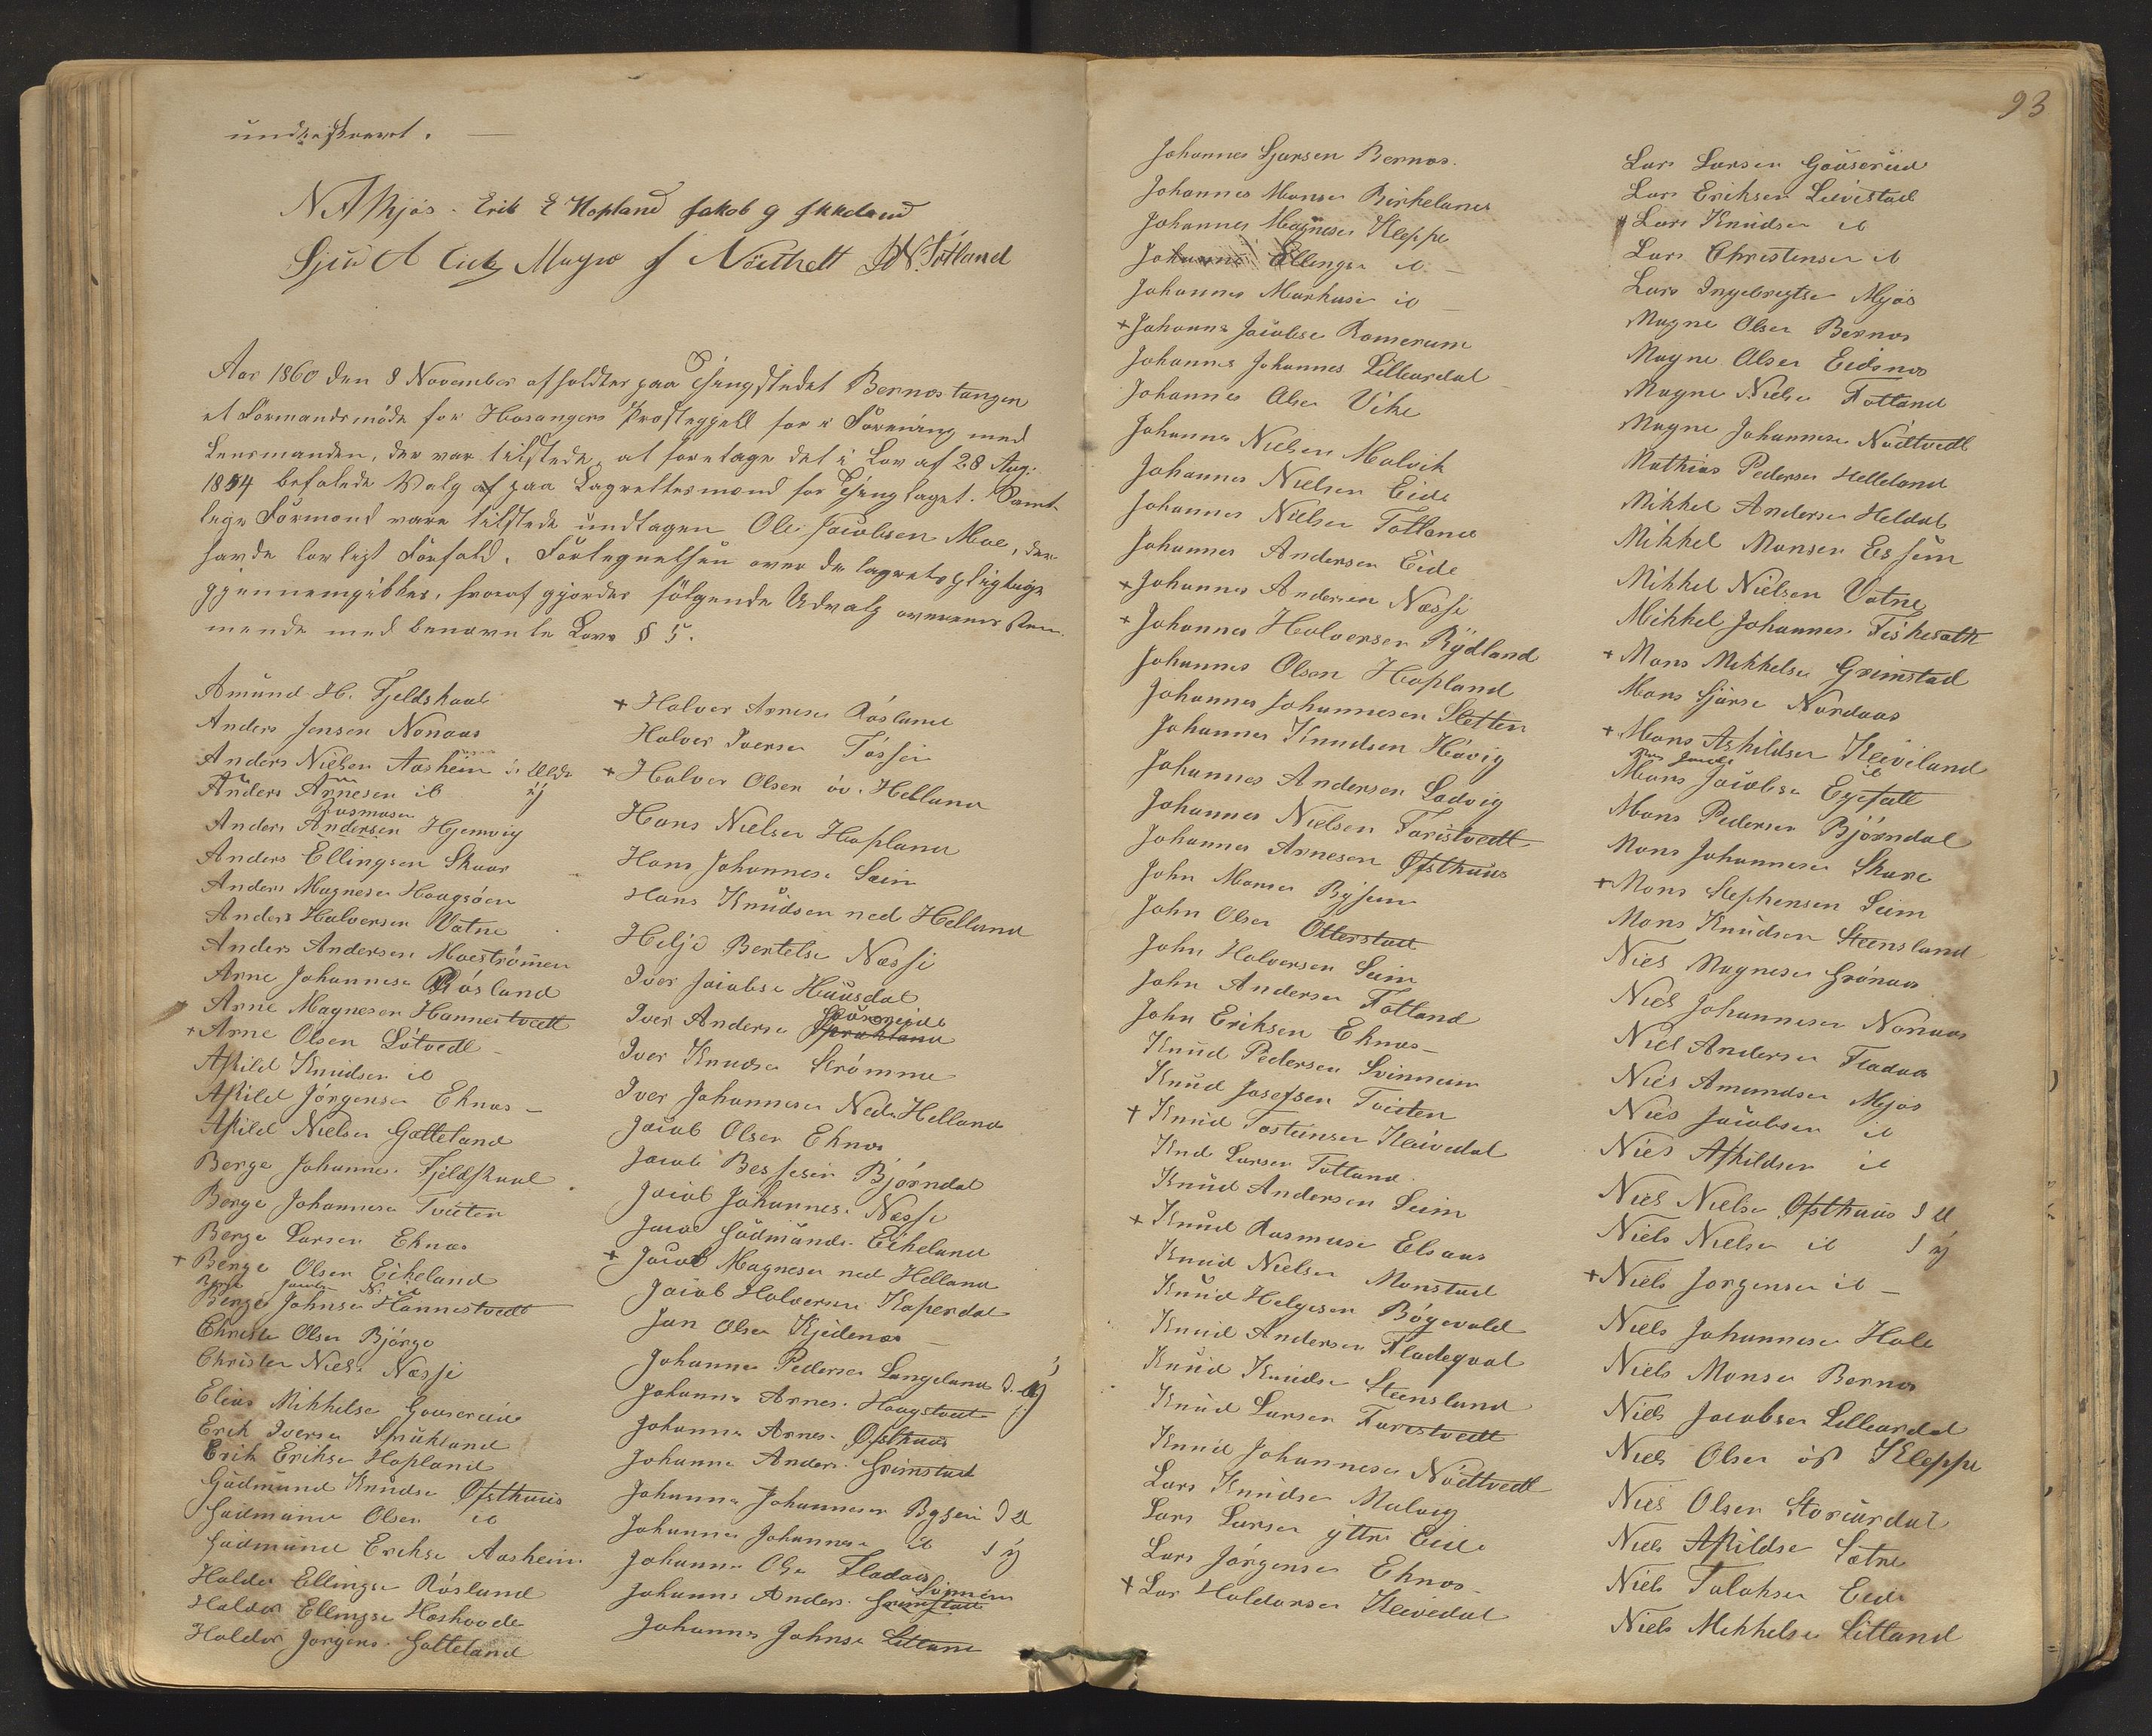 underskrevet. —
N A Mjøs. Erik E Hopland Jakob
Aar 1860 den 8 November afholdtes paa Thingstedet Bernostangen
et Formandsmöde for Hosangers Præstegjeld for i Forening med
Lensmanden, der var tilstede, at foretage det i Lov af 28 Aug:
1854 befalede Valg af paa Lagrettesmænd for Thinglaget. Samt-
lige Formænd vare tilstede undtagen Ole Jacobsen Moe, der
havde lovligt Forfald. Fortegnelsen over de lagretspligtige
gjennemgikkes, hvoraf gjordes følgende Udvalg overensstem-
mende med benævnte Lovs § 5.
Amund H. Fjeldskaal
Anders Jensen Nonaas
Anders Nielsen Aasheim
Anders Arnesen ib
Rasmusen
Anders Andersen Hjemvig
Anders Ellingsen Skaar
Anders Magnesen Haugsöen
Anders Halvorsen Vatne
Anders Andersen Moeströmen
Arne Johannese Röslund
Arne Magnesen Hannestvedt
+ Arne Olsen Lötvedt
Askild Knudsen ib
Askild Jörgensen Eknas
Askild Nielsen Gatteland
Berge Johannes. Fjeldskaal
Berge Johannesen Tveiten
Berge Larsen Eknas
+ Berge Olsen Eikeland
Berge Johnsen Hannestvedt
Christen Olsen Björge
Christen Niels. Næsse
Elias Mikkelse Gouserud
Erik Iversen
Erik Erikse Hopland
Gudmund Knudse Ofsthuus
Gudmund Olsen ib
Gudmund Erikse Aasheim
Haldor Ellingse Röslund
Haldor Ellingse
Haldor Jörgens. Gatteland
+ Halvor Arnesen Röslund
Halvor Iversen
+ Halvor Olsen öv. Helland
Hans Nielsen Hopland
Hans Johannese Seim
Hans Knudsen ned Helland
Helje Bertelse Næsse
Iver Jacobse Huusdal
Iver Anderse
Iver Knudse Strömme
Iver Johannesen Nedr Helland
Jacob Olsen Eknas
Jacob Bessesen Björndal
Jacob Johannes. Næsse
Jacob Gudmunds. Eikeland
+ Jacob Magnesen ned Helland
Jacob Halvorsen
Jan Olsen
Johannes Pedersen Langeland
Johannes Arnes. Haugstvedt
Johannes Arnes. Ofsthuus
Johannes Anders. Grimstad
Johannes Johannesen
Johannes Johannesen ib
Johannes Olse Fladaas
Johannes Anders. Grimstad
Johannes Johnse
93
Johannes Sjursen Bernas.
Johannes Monsen Birkeland
Johannes Magnesen Kleppe
Johannes Ellingsen ib. —
Johannes Markusen ib —
+ Johannes Jacobsen Romerum
Johannes Johannes Lilleurdal
Johannes Olsen Vike
Johannes Nielsen Molvik
Johannes Nielsen Eide
Johannes Nielsen Totland
Johannes Andersen Eide
+ Johannes Andersen Næsse
+ Johannes Halvorsen Rydland
Johannes Olsen Hopland
Johannes Johannesen Sletten
Johannes Knudsen Hövig
Johannes Andersen Ladvig
Johannes Nielsen Farestvedt
Johannes Arnesen Ofsthuus
John Monsen
John Olsen Otterstad
John Halvorsen Seim
John Andersen Totland
John Eriksen Eknas —
Knud Pedersen
Knud Josefsen Tveiten
+ Knud Tosteinsen Kleivedal
Knd Larsen Totland
Knud Andersen Seim
+ Knud Rasmusen Elsaas
Knud Nielsen Monstad
Knud Helgesen Bögevald
Knud Andersen Fladeqval
Knud Knudsen Steensland
Knud Larsen Farestvedt
Knud Johannesen Nödtvedt
Lars Knudsen Molvig
Lars Larsen yttre Eide
Lars Jörgensen Eknas —
+ Lar Haldorsen Kleivedal
Lars Larsen Gouserud
Lars Eriksen Leivestad
Lars Knudsen ib
Lars Christensen ib
Lars Ingebregtse Mjøs
Magne Olsen Bernas
Magne Olsen Eidsnes
Magne Nielsen Totland
Magne Johannesen Nödtvedt
Mathias Pedersen Helleland
Mikkel Andersen Heldal
Mikkel Monsen
Mikkel Nielsen Vatne
Mikkel Johannes.
+ Mons Mikkelse Grimstad
Mons Sjurse Nordaas
+ Mons Askildsen Kleiveland
Mons Jacobse
Mons Pedersen Björndal
Mons Johannesen Skare
+ Mons Stephensen Seim
Mons Knudsen Steensland
Niels Magnesen Grönaas
Niels Johannesen Nonaas
Niels Andersen Fladaas
Niels Amundsen Mjøs
Niels Jacobsen ib
Niels Askildsen ib
Niels Nielse Ofsthuus
Niels Nielse ib
+ Niels Jorgensen ib —
Niels Johannesen Hole
Niels Monsen Bernas
Niels Jacobsen Lilleurdal
Niels Olsen Kleppe
Niels Olsen Storeurdal
Niels Askildse Sætre
Niels Eide
Niels Mikkelse